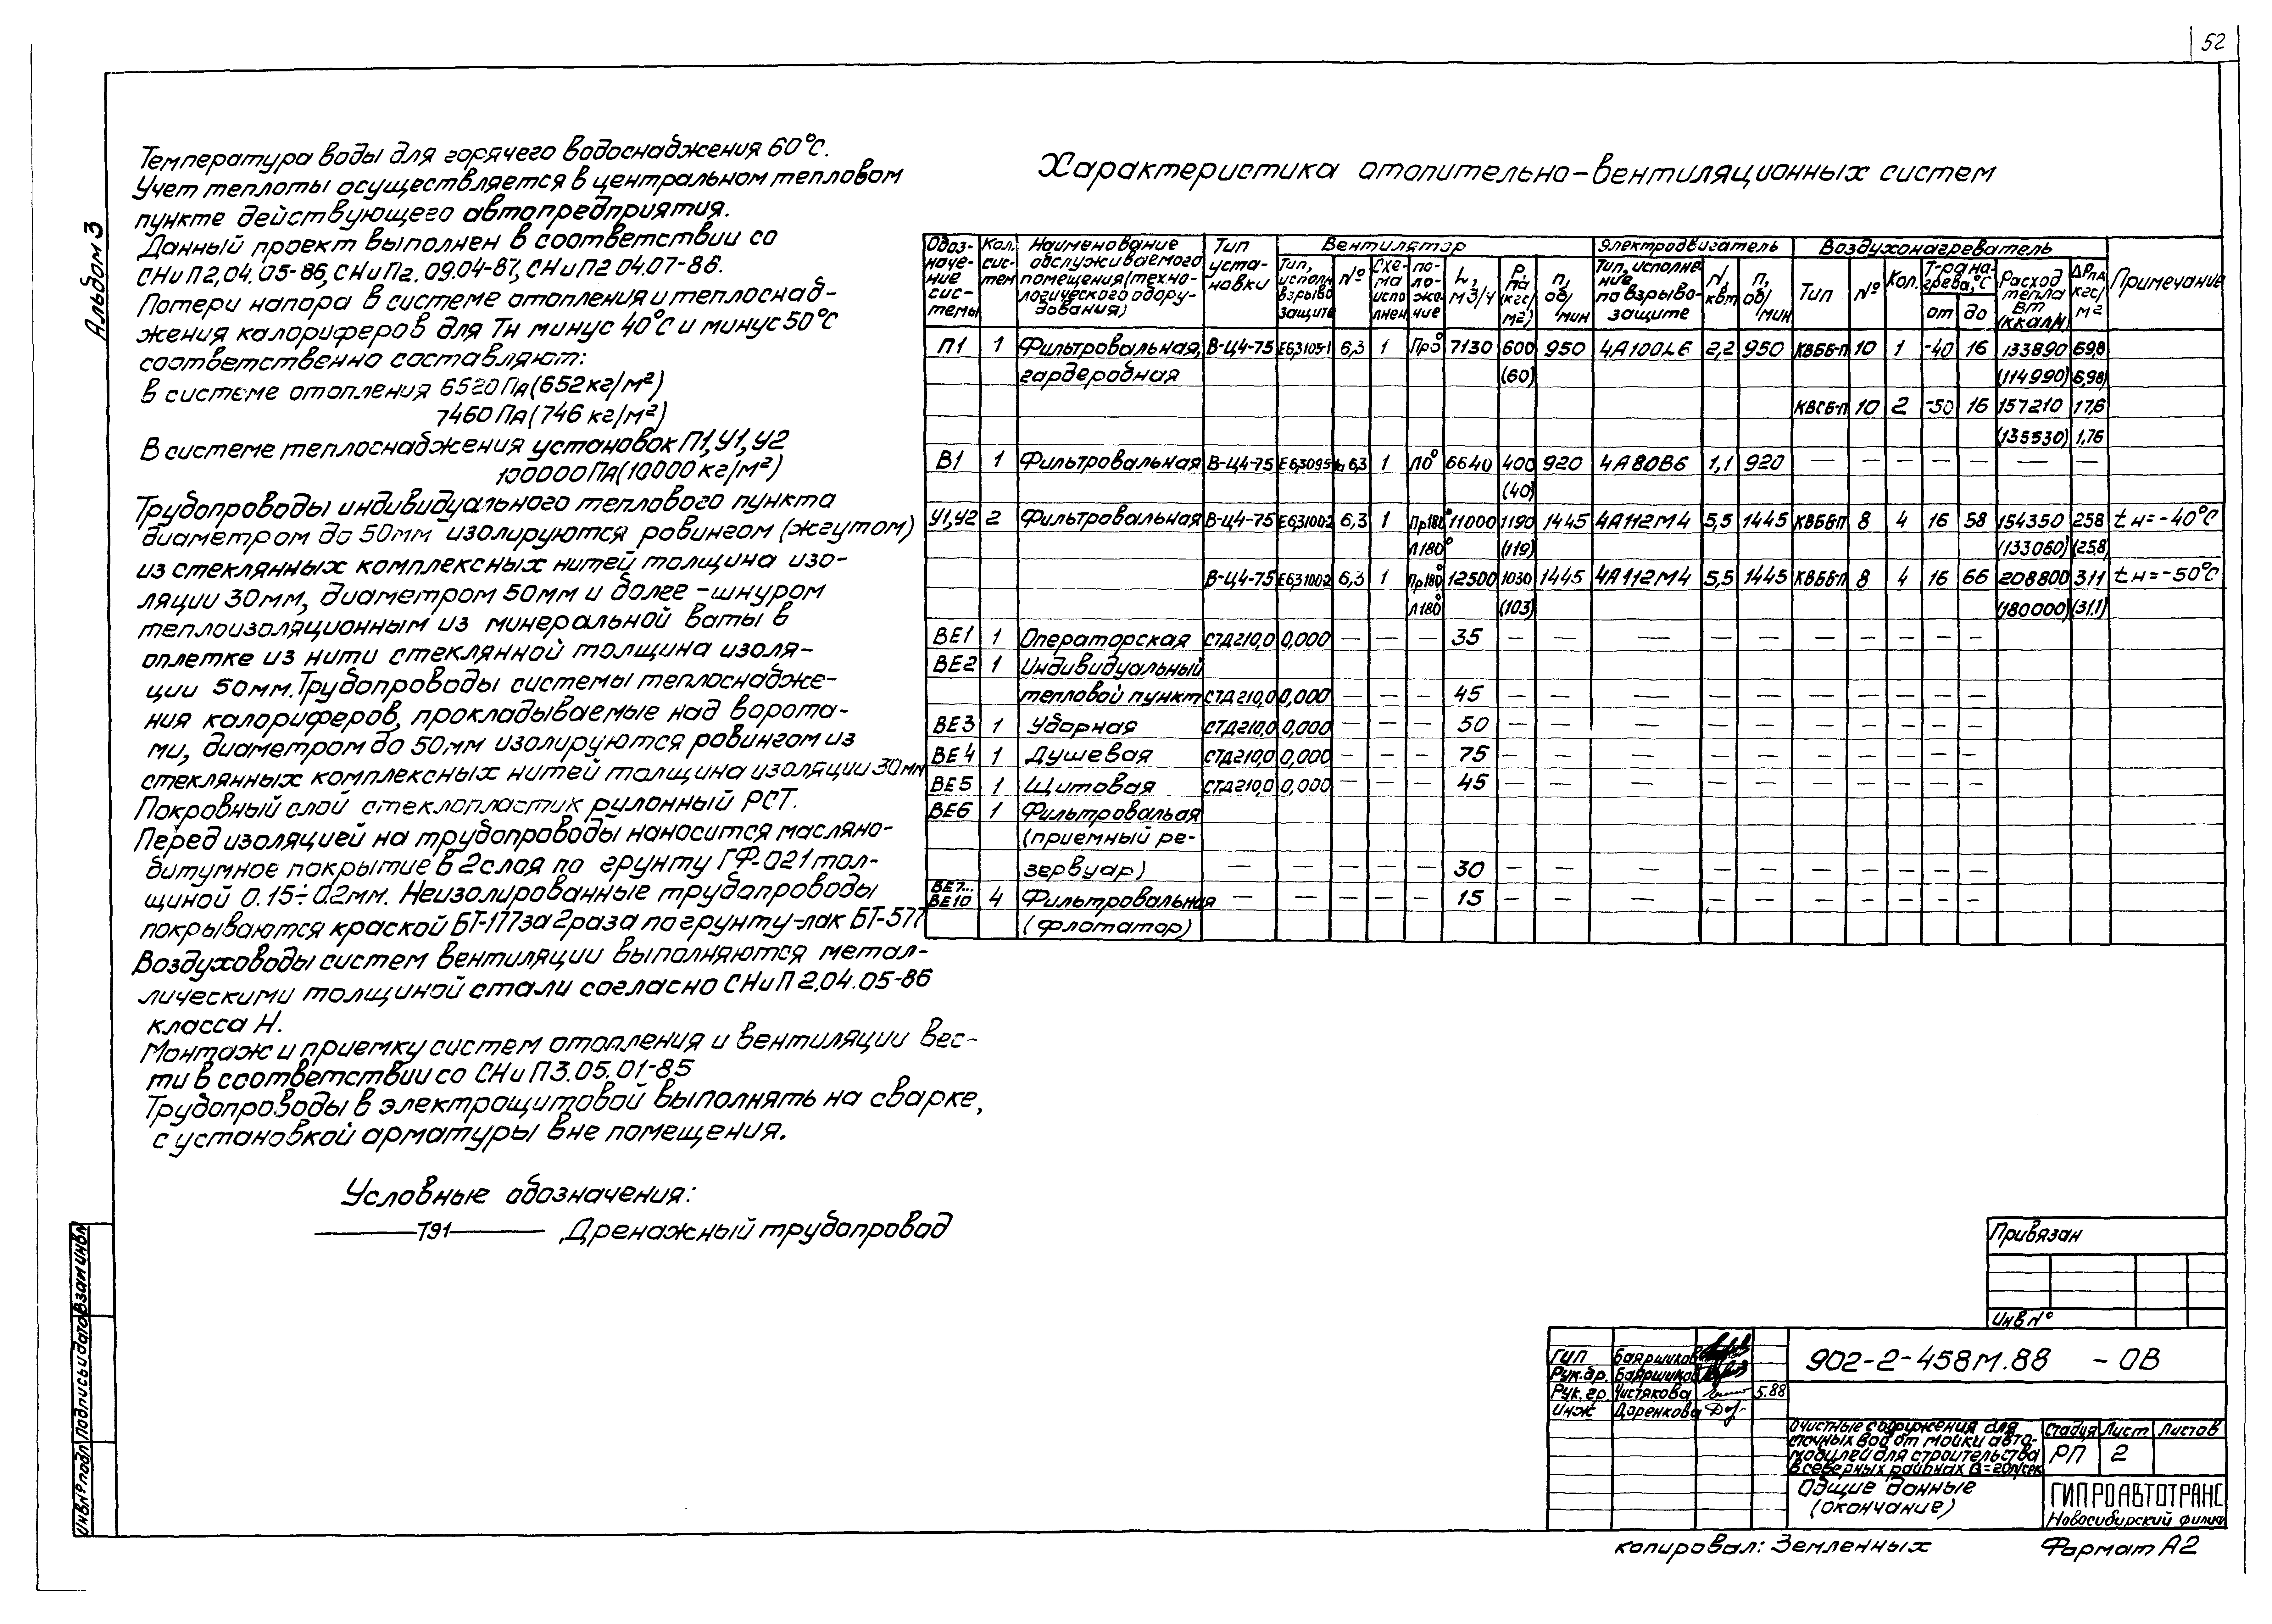 52
Альбом 3
Температура воды для горячего водоснабжения 60°С.
Учет теплоты осуществляется в центральном тепловом
пункте действующего автопредприятия.
Данный проект выполнен в соответствии со
СНиП2.04.05-86, СНиП2.09.04-87, СНиП2 04.07-86.
Потери напора в системе отопления и теплоснаб-
жения калориферов для Тн минус 40°С и минус 50°С
соответственно составляют:
в системе отопления 6520 Па (652кг/м²)
7460 Па (746 кг/м²)
В системе теплоснабжения установок П1, У1, У2
100000 Па (10000 кг/м²)
Трубопроводы индивидуального теплового пункта
диаметром до 50мм изолируются ровингом (жгутом)
из стеклянных комплексных нитей толщина изо-
ляции 30мм, диаметром 50мм и более - шнуром
теплоизоляционным из минеральной ваты в
оплетке из нити стеклянной толщина изоля-
ции 50мм. Трубопроводы системы теплоснабже-
ния калориферов, прокладываемые над ворота-
ми, диаметром до 50мм изолируются ровингом из
стеклянных комплексных нитей толщина изоляции 30мм
Покровный слой стеклопластик рулонный РСТ.
Перед изоляцией на трубопроводы наносится масляно-
битумное покрытие в 2 слоя по грунту ГФ-021 тол-
щиной 0.15÷0.2мм. Неизолированные трубопроводы
покрываются краской БТ-177 за 2 раза по грунту-лак БТ-577
Воздуховоды систем вентиляции выполняются метал-
лическими толщиной стали согласно СНиП 2.04.05-86
класса Н.
Монтаж и приемку систем отопления и вентиляции вес-
ти в соответствии со СНиП3.05.01-85
Трубопроводы в электрощитовой выполнять на сварке,
с установкой арматуры вне помещения.
Условные обозначения:
—Т91— Дренажный трубопровод
Характеристика отопительно-вентиляционных систем
Обоз-наче-ние сис-темы | Кол. сис-тем | Наименование обслуживаемого помещения (техно-логического обору-дования) | Тип уста-новки | Вентилятор | Электродвигатель | Воздухонагреватель | Примечание
Тип, исполн взрыво защите | № | Схе-ма испо лнен | по-ло-же-ние | L, м3/ч | Р, Па (кгс/м2) | n, об/мин | Тип, исполне-ние по взрыво-защите | N, квт | n, об/мин | Тип | № | Кол. | Т-ра на-грева, °С от до | Расход тепла Вт (ккал/ч) | ΔРпа кгс/м2
П1 1 Фильтровальная, В-Ц4-75 Е6,3105-1 6,3 1 Пр0° 7130 600 950 4А100L6 2,2 950 КВББ-П 10 1 -40 16 133890 69,8
гардеробная (60) (114990) 6,98)
КВСБ-П 10 2 -50 16 157210 17,6
(135530) 1,76
В1 1 Фильтровальная В-Ц4-75 6,3 1 Л0° 6640 400 920 4А80В6 1,1 920 — — — — — — —
(40)
У1,У2 2 Фильтровальная В-Ц4-75 Е6,3100-2 6,3 1 Пр180° 11000 1190 1445 4А112М4 5,5 1445 КВББ-П 8 4 16 58 154350 258 tн=-40°С
Л180° (119) (133060) (25,8)
В-Ц4-75 Е6,3100-2 6,3 1 Пр180° 12500 1030 1445 4А112М4 5,5 1445 КВББ-П 8 4 16 66 208800 311 tн=-50°С
Л180° (103) (180000) (31,1)
ВЕ1 1 Операторская СТД210,0 0,000 — — — 35 — — — — — — — — — —
ВЕ2 1 Индивидуальный
тепловой пункт СТД210,0 0,000 — — — 45 — — — — — — — — — —
ВЕ3 1 Уборная СТД210,0 0,000 — — — 50 — — — — — — — — — —
ВЕ4 1 Душевая СТД210,0 0,000 — — — 75 — — — — — — — — — —
ВЕ5 1 Щитовая СТД210,0 0,000 — — — 45 — — — — — — — — — —
ВЕ6 1 Фильтровальая
(приемный ре-
зервуар) — — — — — 30 — — — — — — — — — —
ВЕ7...ВЕ10 4 Фильтровальная — — — — — 15 — — — — — — — — — —
(флотатор)
Привязан
Инв №
ГИП Бояршинов
Рук.бр. Бояршинов
Рук. гр. Чистякова 5.88
Инж Доренкова
902-2-458м.88 - ОВ
Очистные сооружения для
сточных вод от мойки авто-
мобилей для строительства
в северных районах Q=20л/сек
Стадия Лист Листов
РП 2
Общие данные
(окончание)
ГИПРОАВТОТРАНС
Новосибирский филиал
Инв № подл Подпись и дата Взам инв №
копировал: Земленных
Формат А2